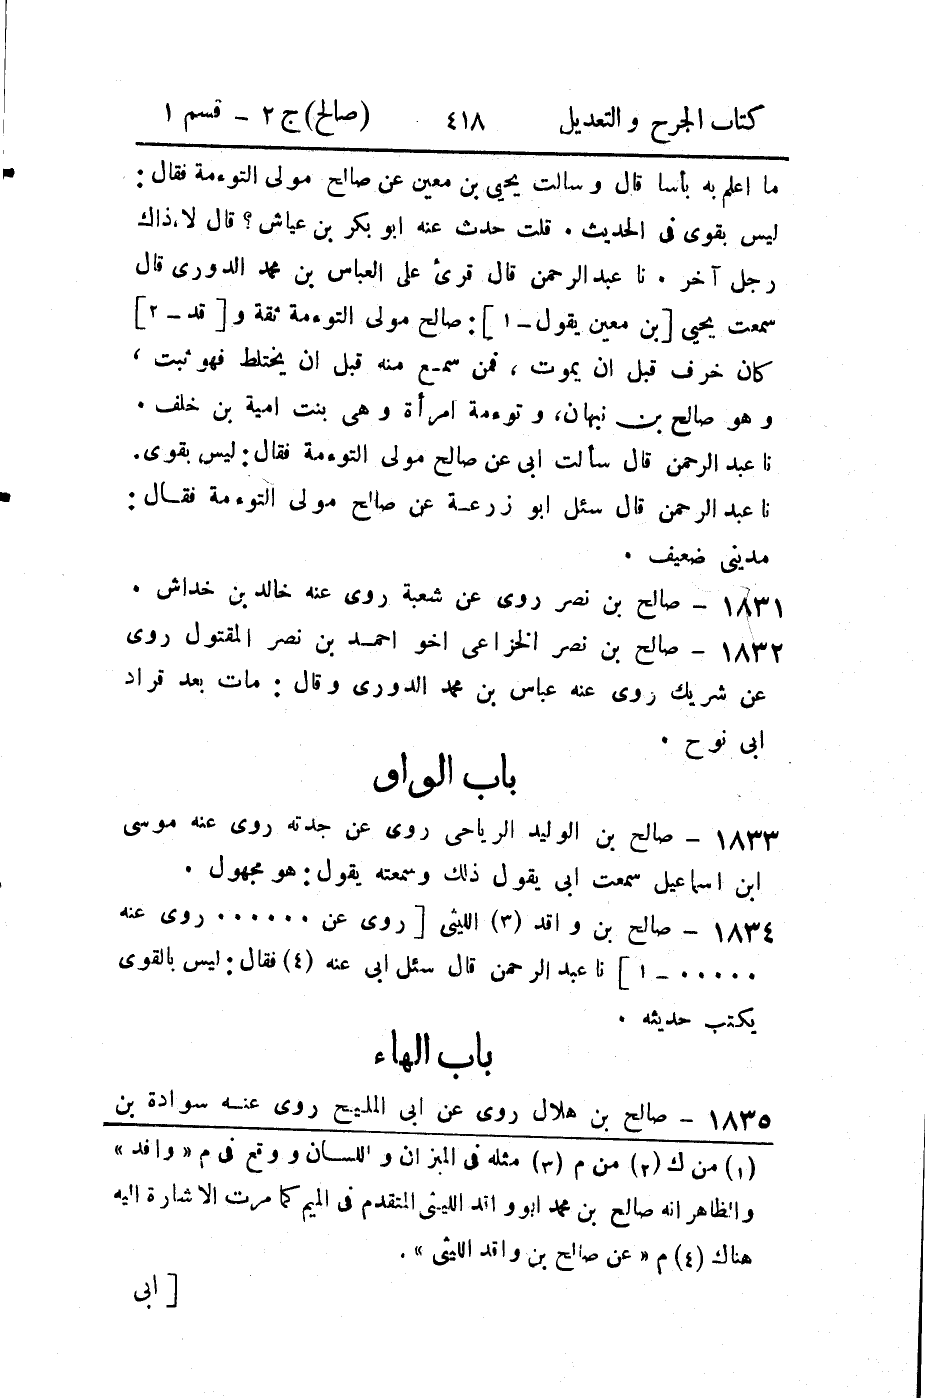 كتاب الجرح و التعديل ٤١٨ (صالح) ج ٢ - قسم ١
ما اعلم به بأسا قال و سالت يحيى بن معين عن صالح مولى التوءمة فقال :
ليس بقوى فى الحديث ٠ قلت حدث عنه ابو بكر بن عياش ؟ قال لا، ذاك
رجل آخر ٠ نا عبد الرحمن قال قرئ على العباس بن محمد الدورى قال
سمعت يحيى [ بن معين يقول - ١ ] : صالح مولى التوءمة ثقة و [ قد - ٢ ]
كان خرف قبل ان يموت ، فمن سمع منه قبل ان يختلط فهو ثبت ،
و هو صالح بن نبهان، و توءمة امرأة و هى بنت امية بن خلف ٠
نا عبد الرحمن قال سألت ابى عن صالح مولى التوءمة فقال : ليس بقوى.
نا عبد الرحمن قال سئل ابو زرعة عن صالح مولى التوءمة فقال :
مدينى ضعيف ٠
١٨٣١ - صالح بن نصر روى عن شعبة روى عنه خالد بن خداش ٠
١٨٣٢ - صالح بن نصر الخزاعى اخو احمد بن نصر المقتول روى
عن شريك روى عنه عباس بن محمد الدورى و قال : مات بعد قراد
ابى نوح ٠
باب الواو
١٨٣٣ - صالح بن الوليد الرياحى روى عن جدته روى عنه موسى
ابن اسماعيل سمعت ابى يقول ذلك و سمعته يقول : هو مجهول ٠
١٨٣٤ - صالح بن واقد (٣) الليثى [ روى عن ٠٠٠٠٠٠ روى عنه
٠٠٠٠٠ - ١ ] نا عبد الرحمن قال سئل ابى عنه (٤) فقال : ليس بالقوى
يكتب حديثه ٠
باب الهاء
١٨٣٥ - صالح بن هلال روى عن ابى المليح روى عنه سوادة بن
(١) من ك (٢) من م (٣) مثله فى الميزان و اللسان و وقع فى م « وافد »
و الظاهر انه صالح بن محمد ابو واقد الليثى المتقدم فى الميم كما مرت الاشارة اليه
هناك (٤) م « عن صالح بن واقد الليثى » .
[ ابى